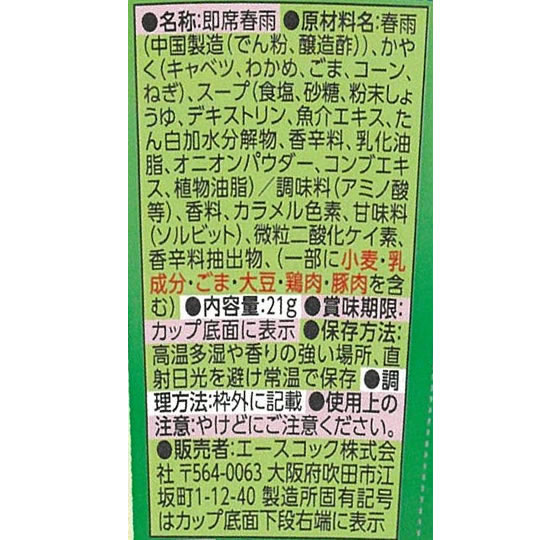 ●名称:即席春雨 ●原材料名:春雨
(中国製造(でん粉、醸造酢))、かや
く(キャベツ、わかめ、ごま、コーン、
ねぎ)、スープ(食塩、砂糖、粉末しょ
うゆ、デキストリン、魚介エキス、た
ん白加水分解物、香辛料、乳化油
脂、オニオンパウダー、コンブエキ
ス、植物油脂)／調味料(アミノ酸
等)、香料、カラメル色素、甘味料
(ソルビット)、微粒二酸化ケイ素、
香辛料抽出物、(一部に小麦・乳
成分・ごま・大豆・鶏肉・豚肉を含
む) ●内容量:21g ●賞味期限:
カップ底面に表示 ●保存方法:
高温多湿や香りの強い場所、直
射日光を避け常温で保存 ●調
理方法:枠外に記載 ●使用上の
注意:やけどにご注意ください。
●販売者:エースコック株式会
社 〒564-0063 大阪府吹田市江
坂町1-12-40 製造所固有記号
はカップ底面下段右端に表示